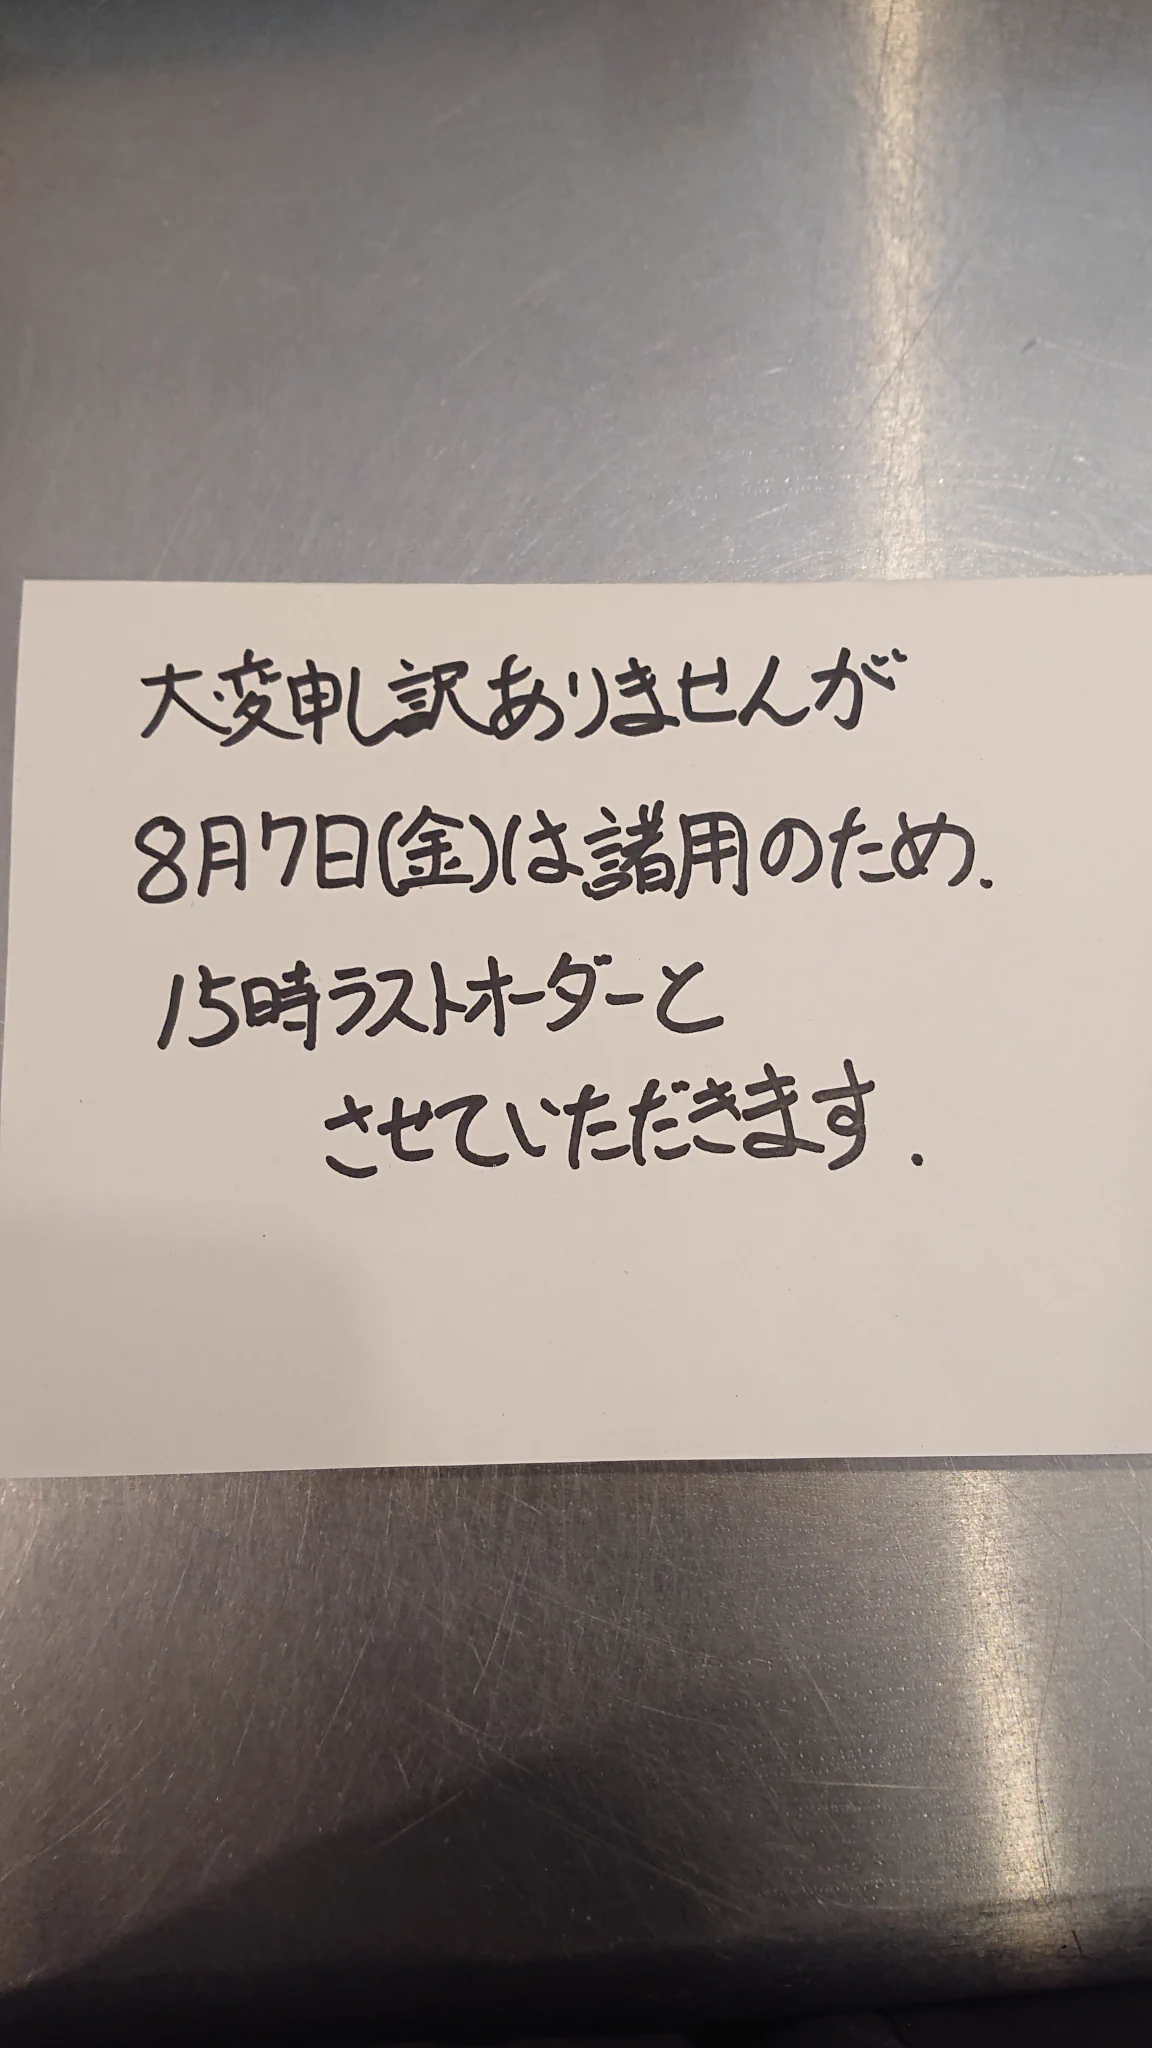 大変申し訳ありませんが
8月7日(金)は諸用のため.
15時ラストオーダーと
させていただきます.